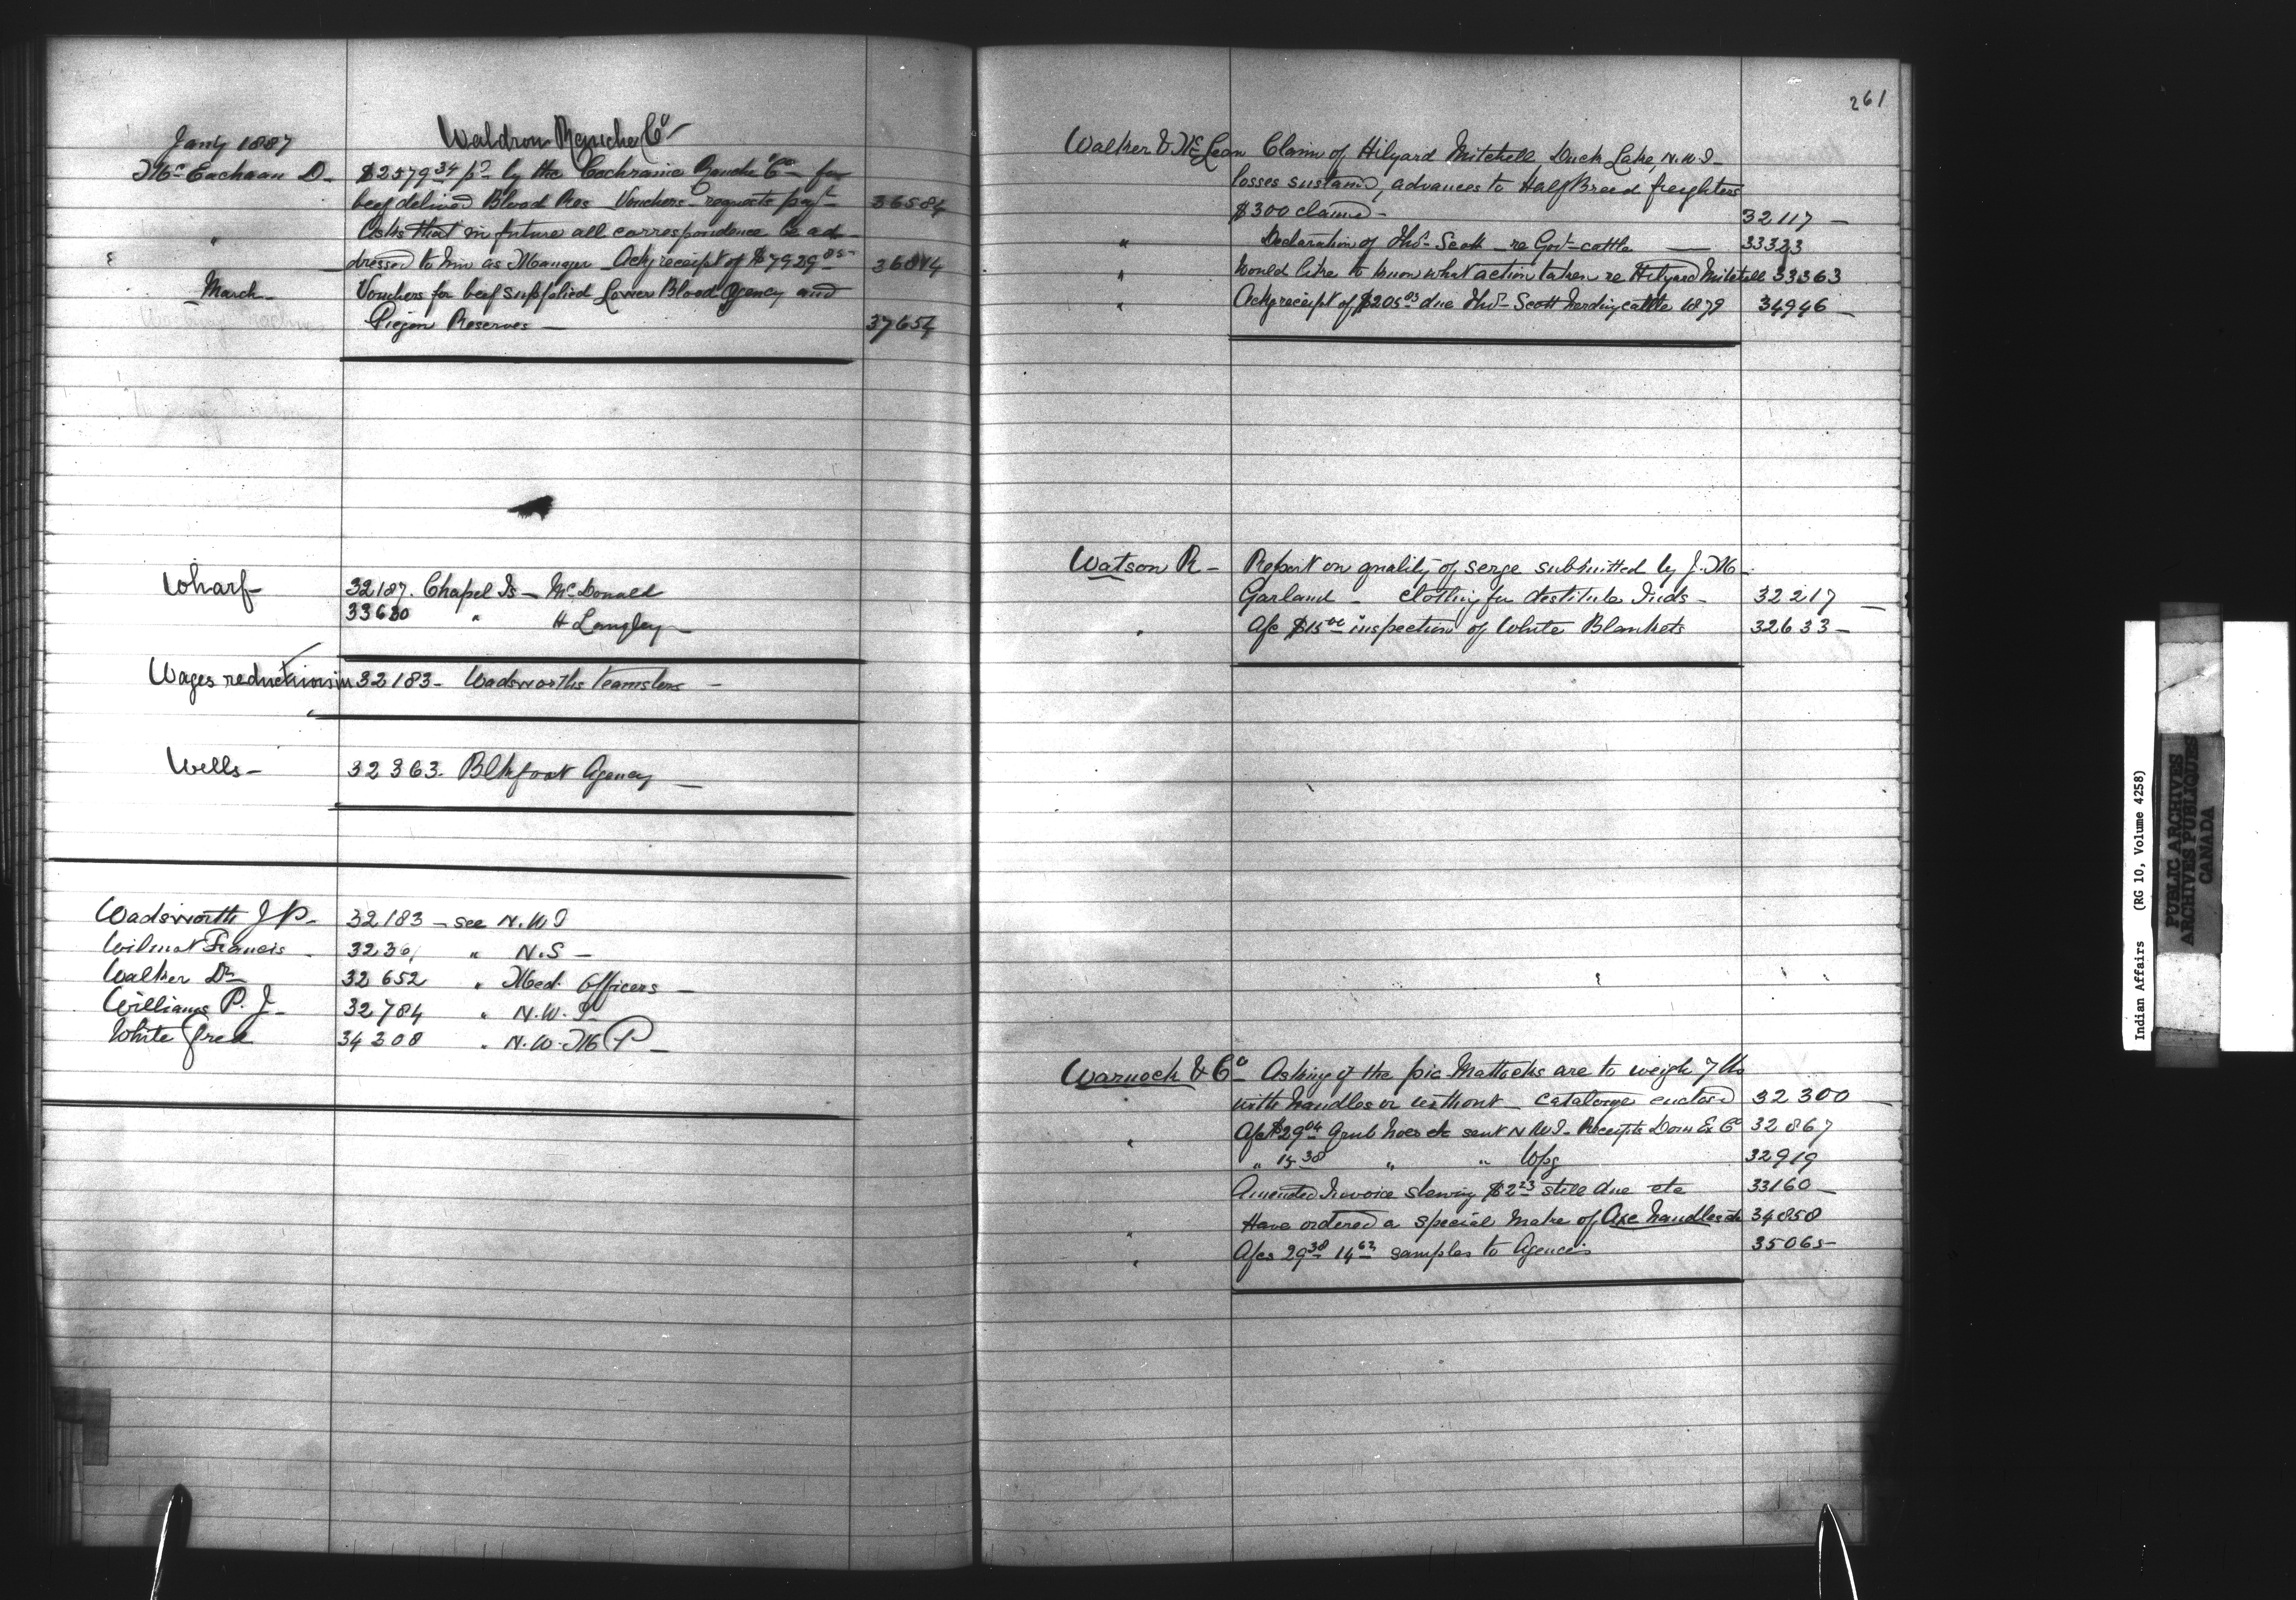 Jany 1887 Waldron Ranche Co
McEachran D. $2579.34 pd by the Cochrane Ranche Co for
beef delived Blood Res Vouchers requests payt 36584
" Asks that in future all correspondence be ad-
dressed to him as Manager Ackg receipt of $7929.85
March Vouchers for beef supplied Lower Blood Agency and
Piegan Reserves 37654
Wharf 32187. Chapel Is McDonald
33680 " H Langley
Wages reductions in 32183 Wadsworths teamsters
Wells 32363. Blkfoot Agency
Wadsworth J P. 32183 see N.W.T
Wilmot Francis 3236 " N.S
Walker Dr 32652 " Med. Officers
Williams P. J. 32784 " N.W.T
White Fred 34308 " N.W.M P
261
Walker & McLean Claim of Hilyard Mitchell, Duck Lake, N.W.T
losses sustaind, advances to Half Breed freighters
$300 claimd 32117
" Declaration of Thos Scott re Govt cattle 33323
" Would like to know what action taken re Hilyard Mitchell 33363
" Ackg receipt of $205.03 due Thos Scott herding cattle 1879 34946
Watson R Report on quality of serge submitted by J. M.
Garland clothing for destitute Inds 32217
" A/c $15.00 inspection of White Blankets 32633
Warnock & Co Asking if the pic Mattocks are to weigh 7 lbs
with handles or without catalogue enclosd 32300
" A/c $29.04 Grub hoes etc sent N.W.T. Receipts Dom Ex Co 32867
" 15.38 " " Wpg 32919
Amended Invoice shewing $2.23 still due etc 33160
" Have ordered a special make of Axe handles etc 34858
" A/cs 29.38 14.62 samples to Agencies 35065
Indian Affairs (RG 10, Volume 4258)
PUBLIC ARCHIVES
ARCHIVES PUBLIQUES
CANADA